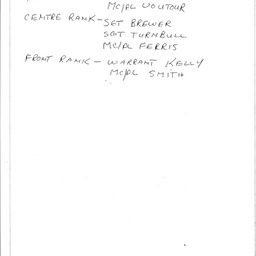 MC/PL VOUTOUR
CENTRE RANK - SGT BREWER
SGT TURNBULL
MC/PL FERRIS
FRONT RANK - WARRANT KELLY
MC/PL SMITH